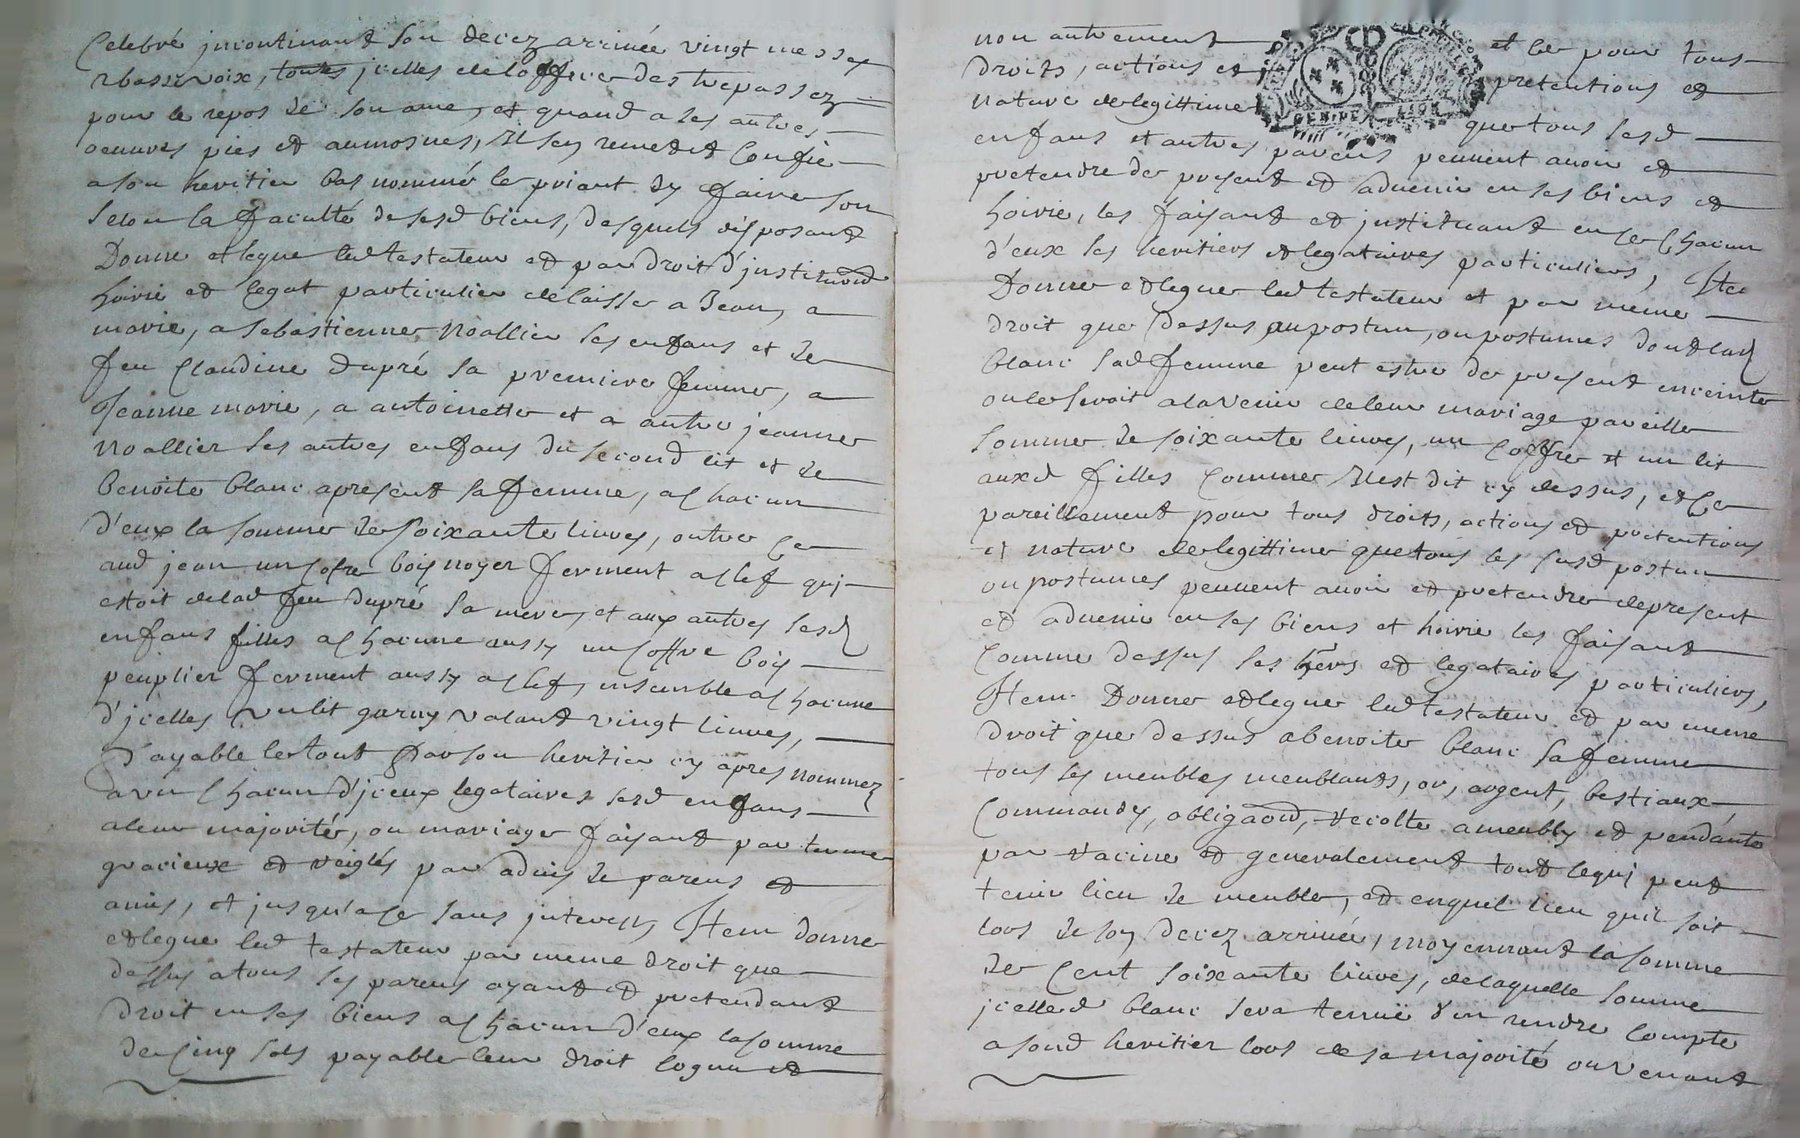 Celebré jncontinant son decez arrivée vingt messes
a basse voix, toutes jcelles de loffice des trepassez
pour le repos de son ame, et quand a ses autres
oeuvres pies et aumosnes, Il sen remet et Confie
a son heritier bas nommé le priant dy faire son
selon la faculté de sesd biens, desquels disposant
Donne et legue led testateur et par droit d'jnstitu͞on
hoirie et legat particulier delaisse a Jean, a
marie, a sebastienne Noallier ses enfans et de
feu Claudine dupré sa premiere femme, a
Jeanne marie, a antoinette et a autre jeanne
Noallier ses autres enfans du second lit et de
benoite blanc apresent sa femme, a chacun
d'eux la somme de soixante livres, outre Ce
aud jean un cofre bois noyer ferment a clef qui
estoit de lad feu dupré sa mere, et aux autres sesd
enfans filles a chacune aussy un coffre bois
peuplier ferment aussy a clef, ensemble a chacune
d'jcelles un lit garny valant vingt livres,
Payable le tout par son heritier cy apres nommez
a un chacun d'jceux legataires sesd enfans
a leur majorité, ou mariage faisant par terme
gracieux et reiglés par advis de parens et
amis, et jusqu'a ce sans jnterests, Item donne
et legue led testateur par meme droit que
dessus a tous ses parens ayant et pretendant
droit en ses biens a chacun d'eux la somme
de Cinq sols payable leur droit cognu et
non autrement et Ce pour tous
droits, actions et pretentions et
nature de legittime que tous sesd
enfans et autres parens peuvent avoir et
pretendre de present et advenir en ses biens et
hoirie, les faisant et jnstituant en ce Chacun
d'eux ses heritiers et legataires particuliers, Item
Donne et legue led testateur et par meme
droit que dessus au postum, ou postumes dont lad
blanc sad femme peut estre de present enceinte
ou le seroit a lavenir de leur mariage pareille
somme de soixante livres, un coffre et un lit
auxd filles Comme Il est dit cy dessus, et Ce
pareillement pour tous droits, actions et pretentions
et nature de legittime que tous les susd postum
ou postumes peuvent avoir et pretendre de present
et advenir en ses biens et hoirie les faisant
Comme dessus ses hers et legataires particuliers,
Item Donne et legue led testateur et par meme
droit que dessus a benoite blanc sa femme
tous ses meubles meublants, or, argent, bestiaux
Commandes, obliga͞ons, recolte ameublis et pendante
par racine et generalement tout ce qui peut
tenir lieu de meuble, et en quel lieu quil soit
lors de son decez arrivée, moyennant la somme
de Cent soixante livres, de laquelle somme
jcelled blanc sera tenuë d'en rendre Compte
a sond heritier lors de sa majorité ou venant